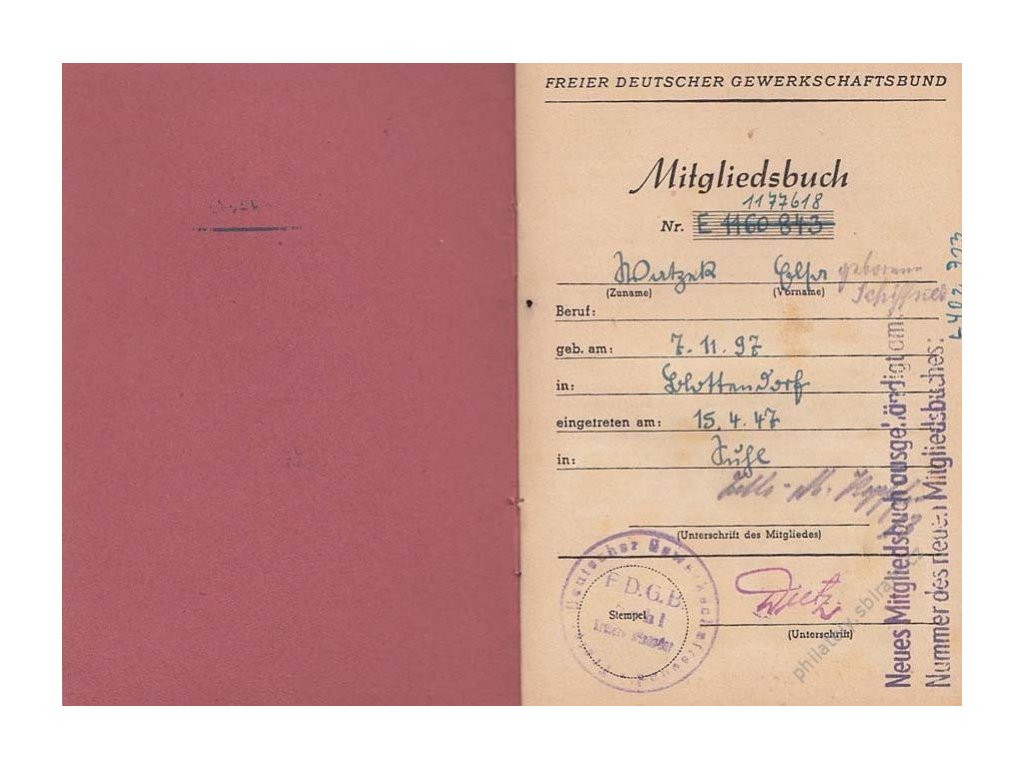 FREIER DEUTSCHER GEWERKSCHAFTSBUND
Mitgliedsbuch
1177618
Nr. E 1160 843
Watzek Elsa geborene
(Zuname) (Vorname)
Beruf:
geb. am: 7. 11. 97
in: Blottendorf
eingetreten am: 15. 4. 47
in: Suhl
(Unterschrift des Mitgliedes)
Deutscher Gewerkschaftsbund
F.D.G.B.
Stempel
Dietz
(Unterschrift)
Neues Mitgliedsbuch ausgehändigt am:
Nummer des neuen Mitgliedsbuches:
philatelie.sbiram.cz